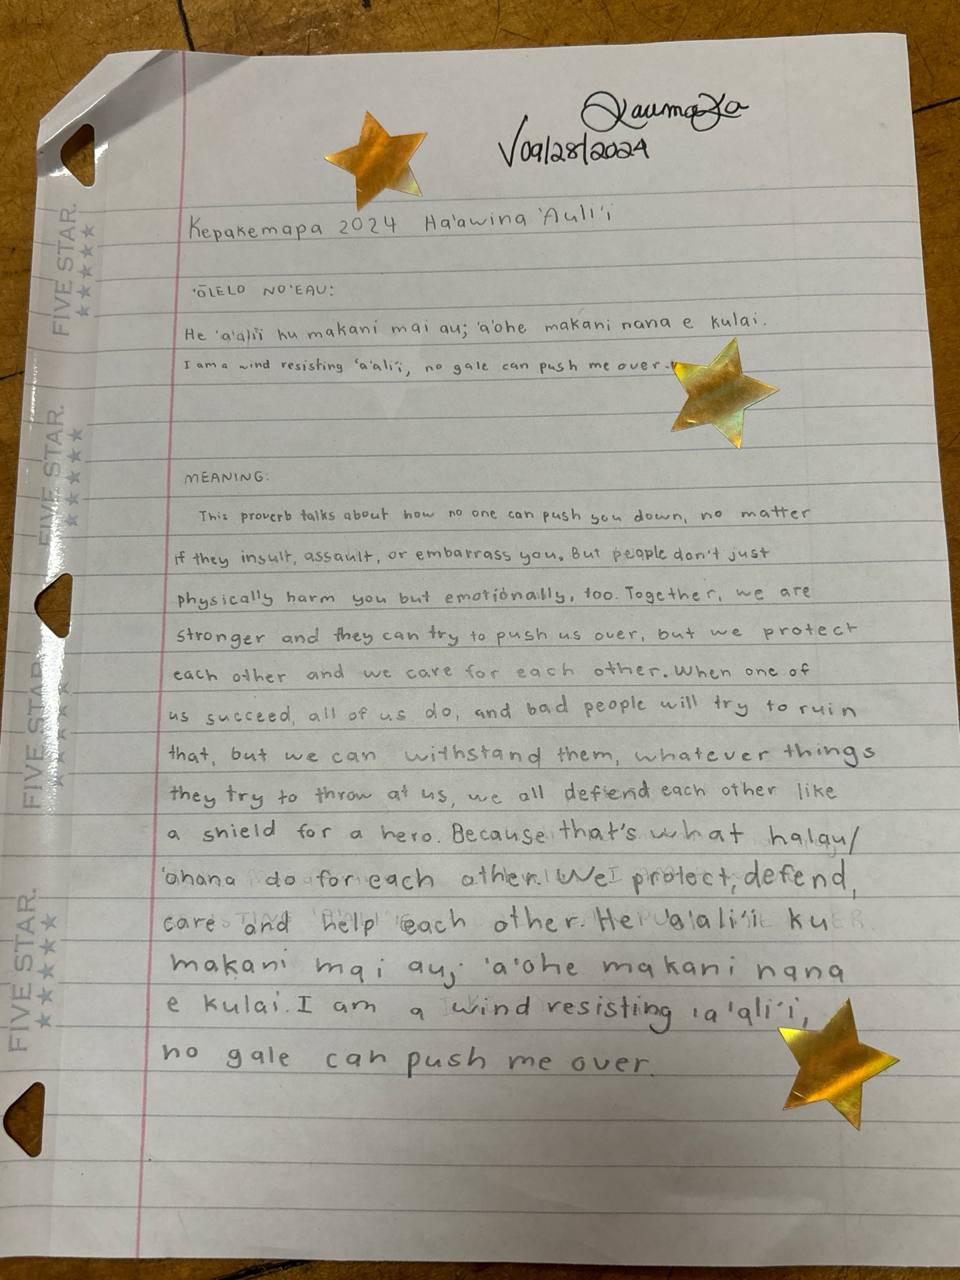 KaumaKa
√09/28/2024
Kepakemapa 2024 Ha'awina 'Auli'i
'ŌLELO NO'EAU:
He 'a'ali'i ku makani mai au; 'a'ohe makani nana e kulai.
I am a wind resisting 'a'ali'i, no gale can push me over.
MEANING:
This proverb talks about how no one can push you down, no matter
if they insult, assault, or embarrass you. But people don't just
physically harm you but emotionally, too. Together, we are
stronger and they can try to push us over, but we protect
each other and we care for each other. When one of
us succeed, all of us do, and bad people will try to ruin
that, but we can withstand them, whatever things
they try to throw at us, we all defend each other like
a shield for a hero. Because that's what halau/
'ohana do for each other. We protect, defend,
care and help each other. He 'a'ali'i ku
makani mai au; 'a'ohe makani nana
e kulai. I am a wind resisting 'a'ali'i,
no gale can push me over.
FIVE STAR.
FIVE STAR.
FIVE STAR.
FIVE STAR.